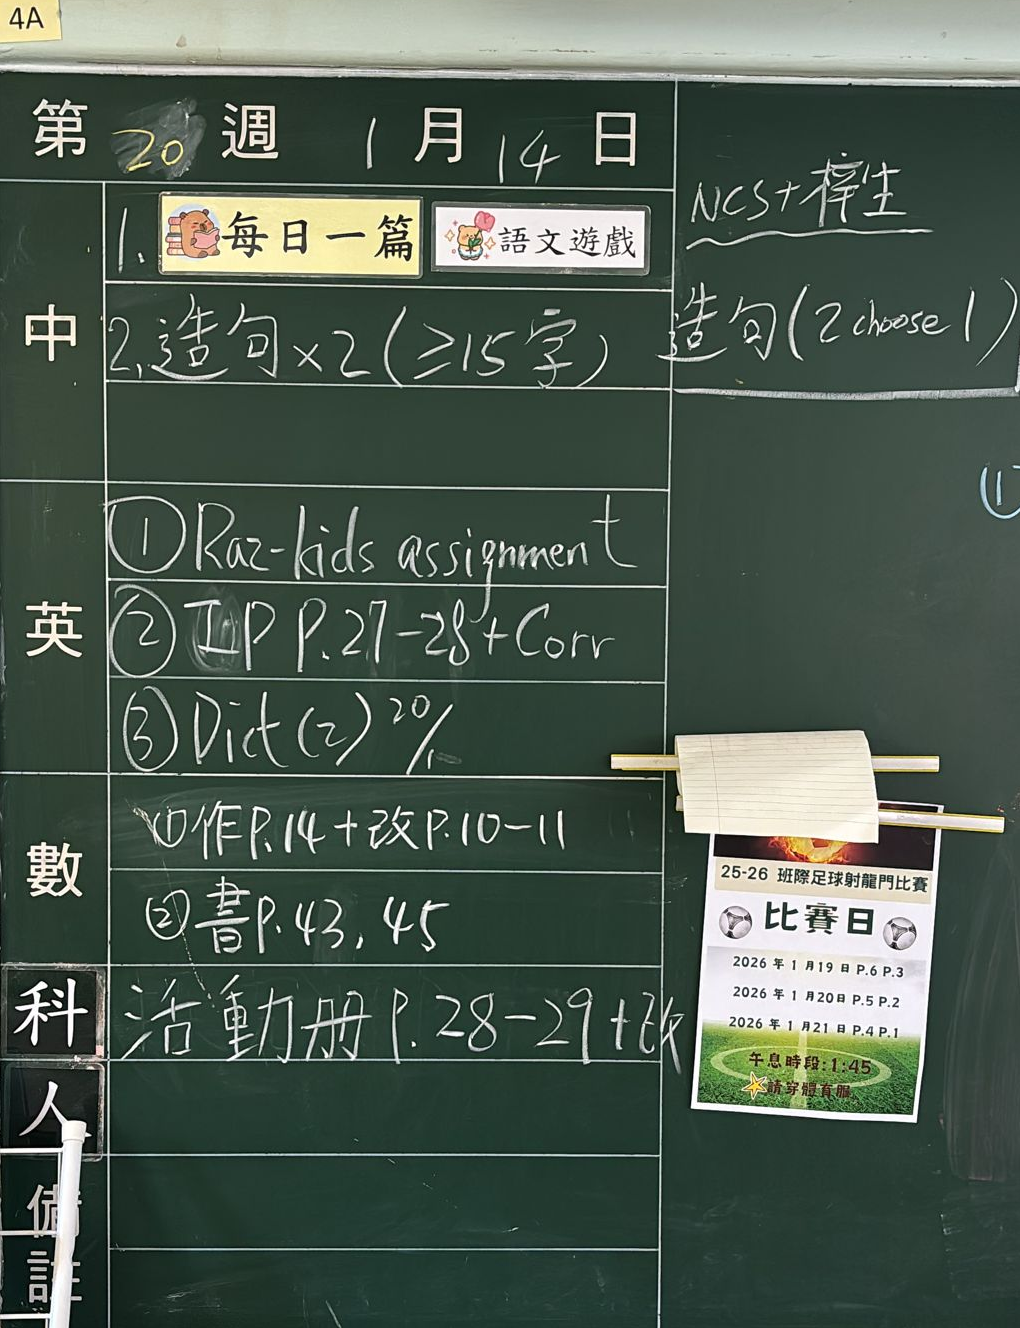 4A
第 20 週 1 月 14 日
中
1. 每日一篇 語文遊戲
2. 造句×2(≥15字)
NCS+梓生
造句(2 choose 1)
①
英
① Raz-kids assignment
② IP P.27-28+Corr
③ Dict(2) 20/1
數
① 作P.14+改P.10-11
② 書P.43, 45
科
活動册 P.28-29+改
人
備註
25-26 班際足球射龍門比賽
比賽日
2026 年 1 月19 日 P.6 P.3
2026 年 1 月20日 P.5 P.2
2026 年 1 月21 日 P.4 P.1
午息時段:1:45
請穿體育服